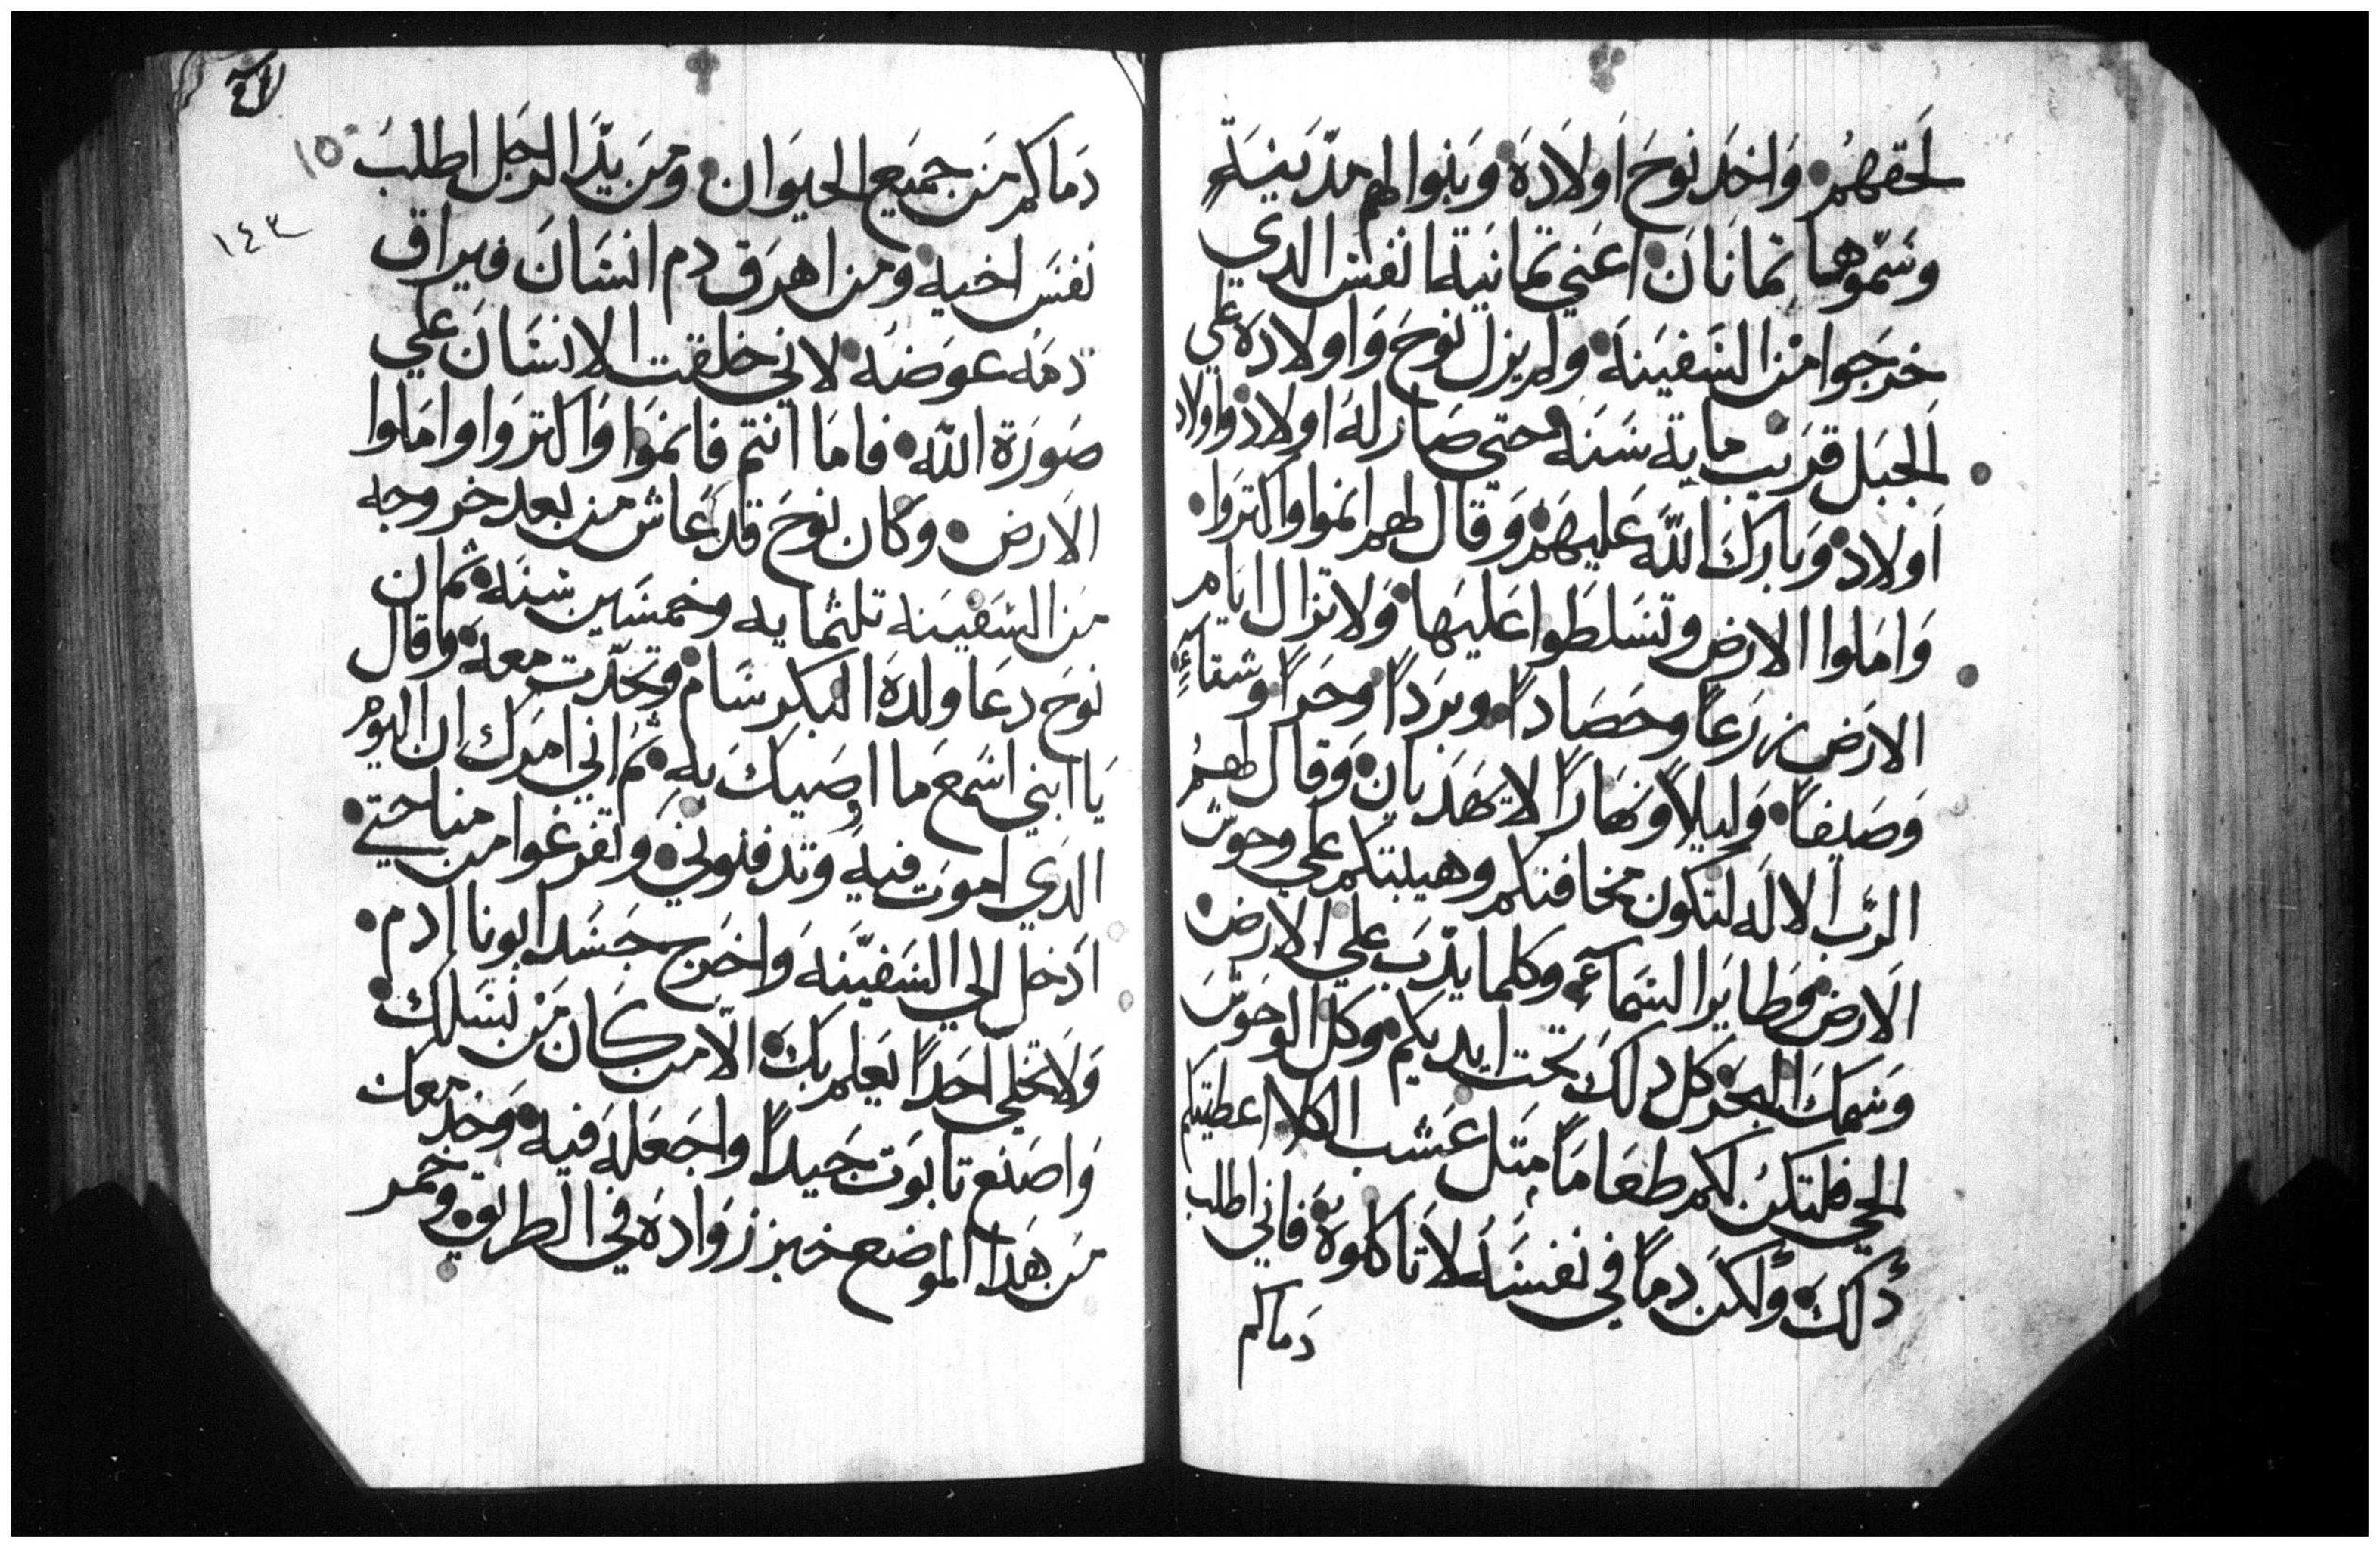 لحقهم • واخد نوح اولاده • وبنوا لهم مدينة
وسموها تمانان • اعني تمانية انفس الدي
خرجوا من السفينه • ولم يزل نوح واولاده علي
الجبل قريب ماية سنه • حتي صار له اولاد واولاد
اولاد • وبارك الله عليهم • وقال لهم انموا واكتروا •
واملوا الارض وتسلطوا عليها • ولا تزال ايام
الارض زرعاً وحصاداً • وبرداً وحراً وشتاءً •
وصيفاً • وليلاً ونهاراً لا يهديان • وقال لهم
الرب الاله لتكون مخافتكم وهيبتكم علي وحوش
الارض • وطاير السماء • وكلما يدب علي الارض •
وسمك البحر • كل دلك تحت ايديكم • وكل الوحوش
الحي فلتكن لكم طعاماً متل عشب الكلا اعطيتكم
دلك • ولكن دماً في نفسه لا تاكلوه • فاني اطلب
دماكم
١٥
١٤٣
دماكم من جميع الحيوان • ومن يد الرجل اطلب
نفس اخيه • ومن اهرق دم انسان فيراق
دمه عوضه • لاني خلقت الانسان علي
صورة الله • فاما انتم فانموا واكتروا واملوا
الارض • وكان نوح قد عاش من بعد خروجه
من السفينه تلثمايه وخمسين سنه • ثم ان
نوح دعا ولده البكر سام • وتحدت معه • وقال
يا ابني اسمع ما اوصيك به • ثم اني امرك ان اليوم
الدي اموت فيه وتدفنوني • وتفرغوا من مناحتي •
ادخل الي السفينه واخرج جسد ابونا ادم •
ولا تخلي احداً يعلم بك • الا من كان من نسلك •
واصنع تابوت جيداً واجعله فيه • وخد معك
من هدا الموضع خبز زواده في الطريق • وخمر